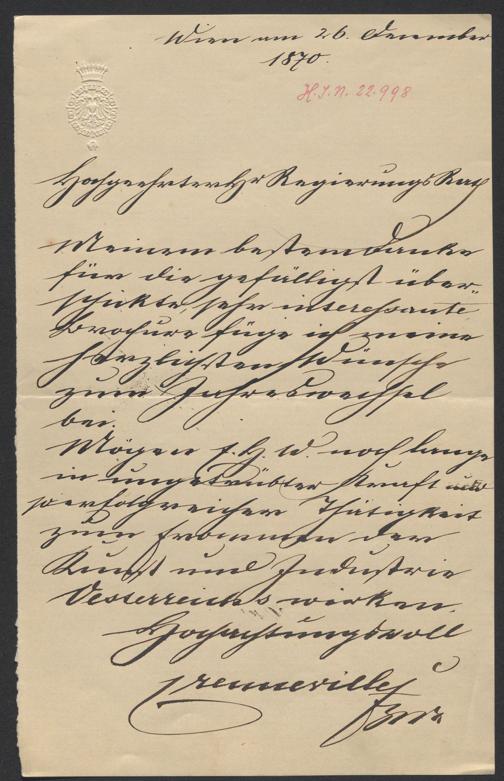 Wien am 26. Dezember
1870.
H.I.N. 22.998
Hochgeehrter Hr Regierungs Rath
Meinem besten Danke
für die gefälligst über-
schickte, sehr interessante
Brochure füge ich meine
herzlichsten Wünsche
zum Jahreswechsel
bei.
Mögen E. H. W. noch lange
in ungetrübter Kraft und
erfolgreicher Thätigkeit
zum Frommen der
Kunst und Industrie
Oesterreichs wirken.
Hochachtungsvoll
Crenneville